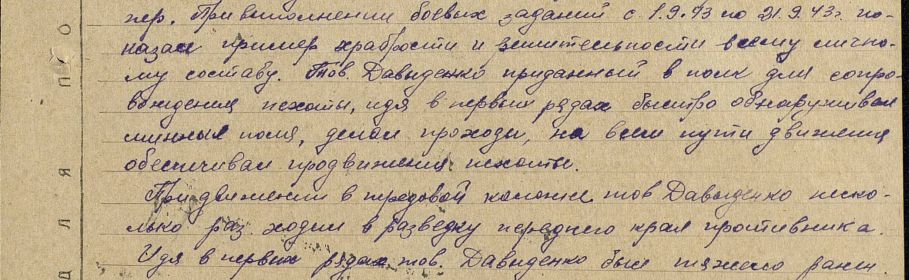 пер. При выполнении боевых заданий с 1.9.43 по 21.9.43г. по-
казал пример храбрости и решительности всему лично-
му составу. Тов. Давыденко приданный в полк для сопро-
вождения пехоты, идя в первых рядах быстро обнаруживал
минные поля, делал проходы, на всем пути движения
обеспечивал продвижения пехоты.
При движении в передовой колонне тов Давыденко неско-
лько раз ходил в разведку переднего края противника.
Идя в первых рядах тов. Давыденко был тяжело ранен.
ДЛЯ ПО